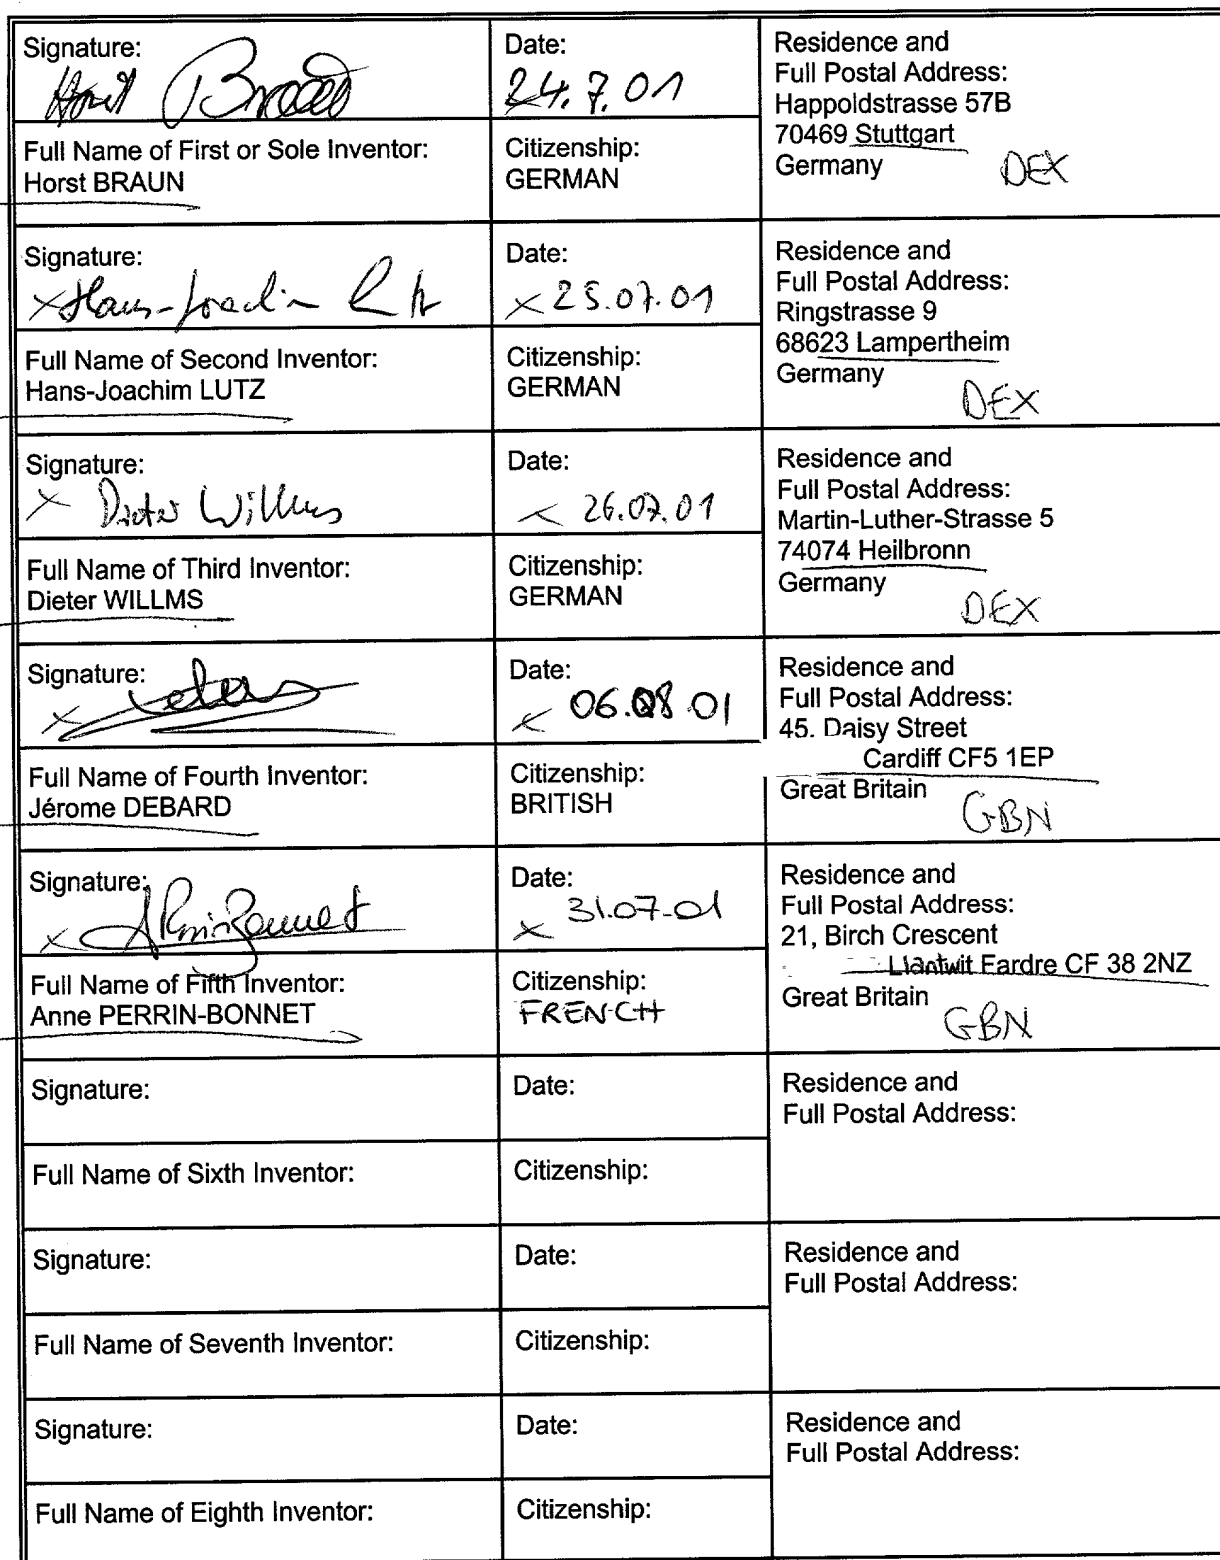 Signature:
Horst Braun
Date:
24.7.01
Residence and
Full Postal Address:
Happoldstrasse 57B
70469 Stuttgart
Germany DEX
Full Name of First or Sole Inventor:
Horst BRAUN
Citizenship:
GERMAN
Signature:
x Hans-Joachim
Date:
x 25.07.01
Residence and
Full Postal Address:
Ringstrasse 9
68623 Lampertheim
Germany
DEX
Full Name of Second Inventor:
Hans-Joachim LUTZ
Citizenship:
GERMAN
Signature:
x Dieter Willms
Date:
x 26.07.01
Residence and
Full Postal Address:
Martin-Luther-Strasse 5
74074 Heilbronn
Germany
DEX
Full Name of Third Inventor:
Dieter WILLMS
Citizenship:
GERMAN
Signature:
x
Date:
x 06.08.01
Residence and
Full Postal Address:
45. Daisy Street
Cardiff CF5 1EP
Great Britain
GBN
Full Name of Fourth Inventor:
Jérome DEBARD
Citizenship:
BRITISH
Signature:
x APerrinBonnet
Date:
x 31.07-01
Residence and
Full Postal Address:
21, Birch Crescent
Llantwit Fardre CF 38 2NZ
Great Britain
GBN
Full Name of Fifth Inventor:
Anne PERRIN-BONNET
Citizenship:
FRENCH
Signature:
Date:
Residence and
Full Postal Address:
Full Name of Sixth Inventor:
Citizenship:
Signature:
Date:
Residence and
Full Postal Address:
Full Name of Seventh Inventor:
Citizenship:
Signature:
Date:
Residence and
Full Postal Address:
Full Name of Eighth Inventor:
Citizenship: